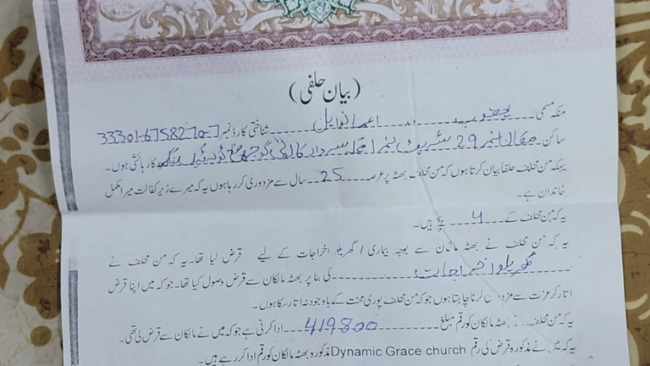 (بیان حلفی)
منکہ مسمی یعقوب ولد عمانوایل شناختی کارڈ نمبر 33301-6758270-7
ساکن مکان نمبر 29 سٹریٹ نمبر 1 محلہ سردار کالونی گوجرہ ضلع ٹوبہ ٹیک سنگھ کا رہائشی ہوں۔
یہکہ من مخلف حلفاً بیان کرتا ہوں کہ من مخلف بھٹہ پر عرصہ 25 سال سے مزدوری کر رہا ہوں یہ کہ میرے زیر کفالت میرا مکمل
خاندان ہے۔
یہ کہ من مخلف کے 4 بچے ہیں۔
یہ کہ من مخلف نے بھٹہ مالکان سے بوجہ بیماری / گھریلو اخراجات کے لیے قرض لیا تھا۔ یہ کہ من مخلف نے
گھریلو اخراجات کی بنا پر بھٹہ مالکان سے قرض وصول کیا تھا۔ جو کہ میں اپنا قرض
اتار کر عزت سے مزدوری کرنا چاہتا ہوں جو کہ من مخلف پوری محنت کے باوجود نہ اتار سکا ہوں۔
یہ کہ من مخلف نے بھٹہ مالکان کو رقم مبلغ 419800 ادا کرنی ہے جو کہ میں نے مالکان سے قرض لی تھی۔
یہ کہ میں نے مذکورہ قرض کی رقم Dynamic Grace church مذکورہ بھٹہ مالکان کو رقم ادا کر رہے ہیں۔